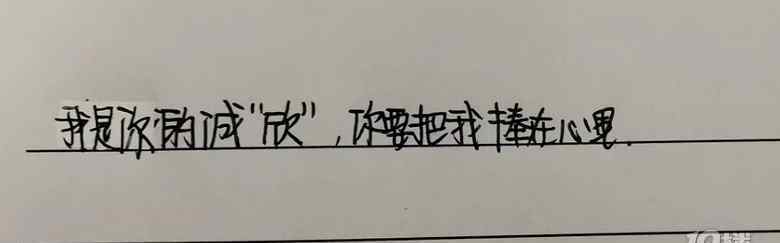 我是你的诚“欣”，你要把我捧在心里.